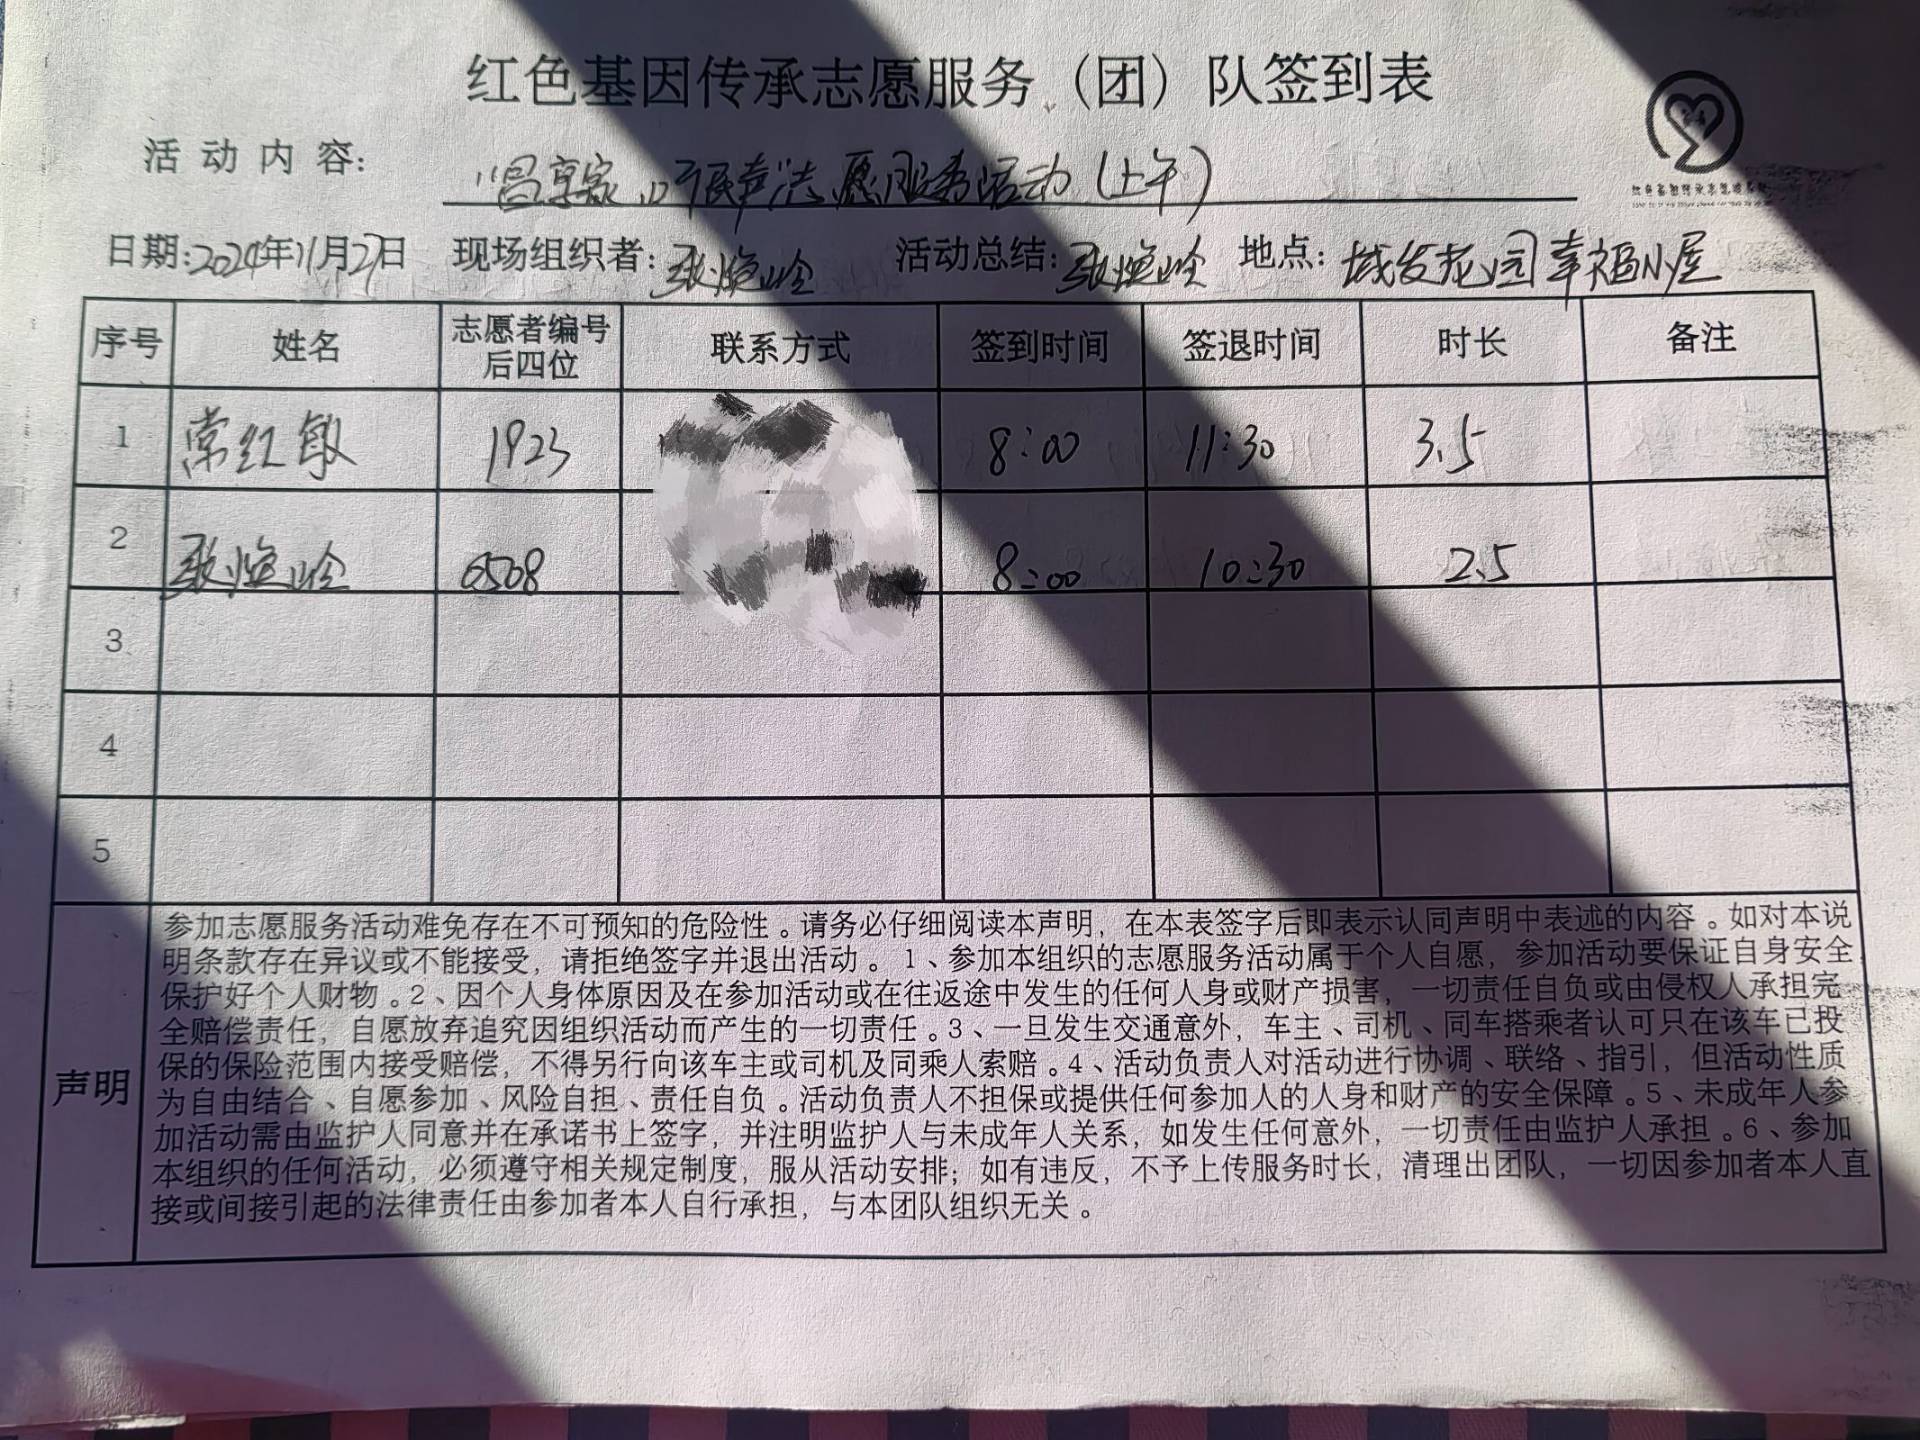 红色基因传承志愿服务（团）队签到表
活动内容： 服务活动（上午）
日期：2024年11月27日 现场组织者： 活动总结： 地点：城发花园幸福小屋
序号 姓名 志愿者编号后四位 联系方式 签到时间 签退时间 时长 备注
1 常红敏 1923 8:00 11:30 3.5
2 0508 8:00 10:30 2.5
3
4
5
声明
参加志愿服务活动难免存在不可预知的危险性。请务必仔细阅读本声明，在本表签字后即表示认同声明中表述的内容。如对本说
明条款存在异议或不能接受，请拒绝签字并退出活动。1、参加本组织的志愿服务活动属于个人自愿，参加活动要保证自身安全，
保护好个人财物。2、因个人身体原因及在参加活动或在往返途中发生的任何人身或财产损害，一切责任自负或由侵权人承担完
全赔偿责任，自愿放弃追究因组织活动而产生的一切责任。3、一旦发生交通意外，车主、司机、同车搭乘者认可只在该车已投
保的保险范围内接受赔偿，不得另行向该车主或司机及同乘人索赔。4、活动负责人对活动进行协调、联络、指引，但活动性质
为自由结合、自愿参加、风险自担、责任自负。活动负责人不担保或提供任何参加人的人身和财产的安全保障。5、未成年人参
加活动需由监护人同意并在承诺书上签字，并注明监护人与未成年人关系，如发生任何意外，一切责任由监护人承担。6、参加
本组织的任何活动，必须遵守相关规定制度，服从活动安排；如有违反，不予上传服务时长，清理出团队，一切因参加者本人直
接或间接引起的法律责任由参加者本人自行承担，与本团队组织无关。